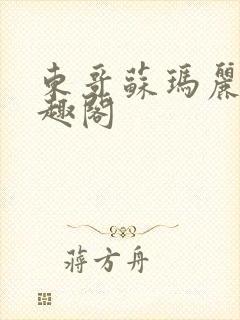 東哥蘇瑪麗
趣閣
蔣方舟